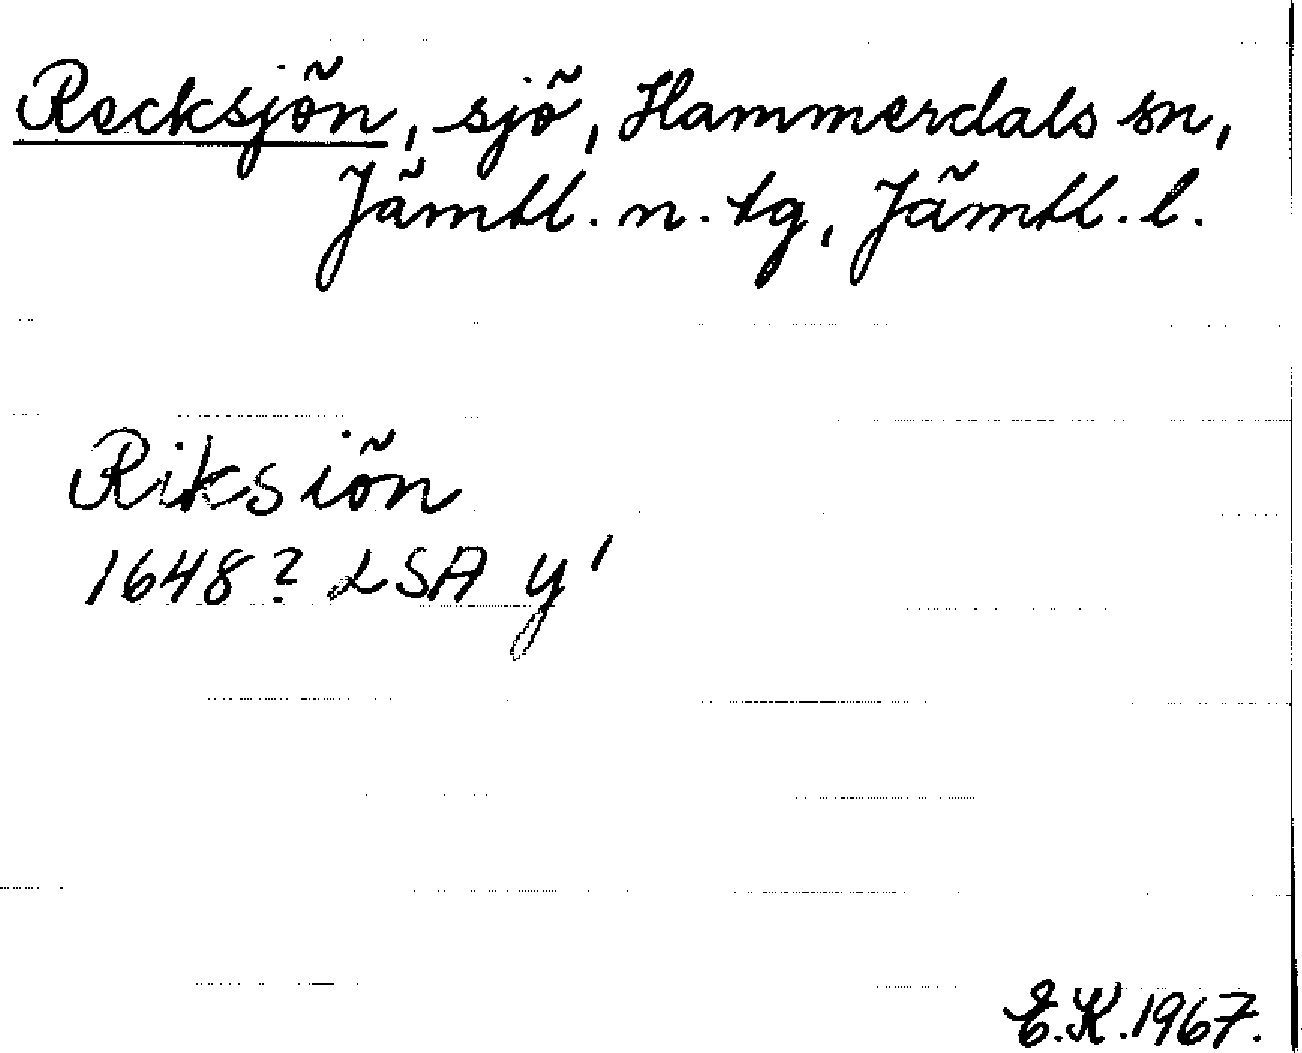 Recksjön, sjö, Hammerdals sn,
Jämtl. n. tg, Jämtl. l.
Riksiön
1648? LSA y'
E.K. 1967.